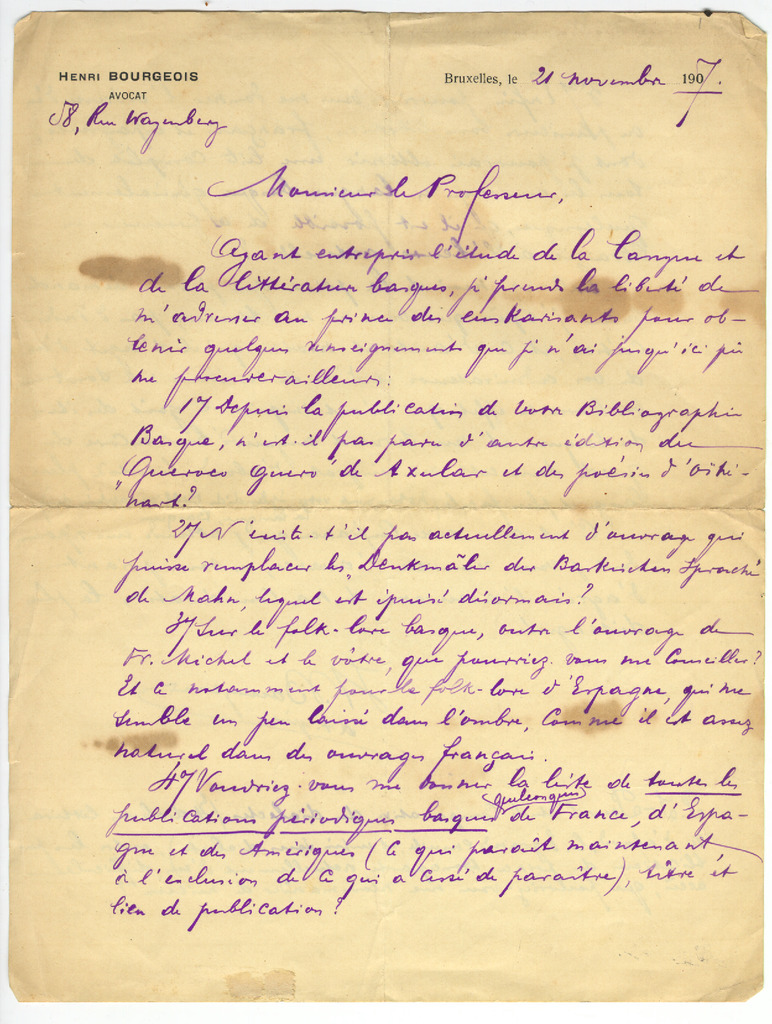 HENRI BOURGEOIS
AVOCAT
58, Rue Wazemberg
Bruxelles, le 21 novembre 1907.
Monsieur le Professeur,
Ayant entrepris l'étude de la langue et
de la littérature basques, je prends la liberté de
m'adresser au prince des euskarisants pour ob-
tenir quelques renseignements que je n'ai jusqu'ici pu
me procurer ailleurs:
1° Depuis la publication de votre Bibliographie
Basque, n'est-il pas paru d'autre édition du
"Gueroco guero" de Axular et des poésies d'Oihé-
nart?
2° N'existe-t'il pas actuellement d'ouvrage qui
puisse remplacer les "Denkmäler der Baskischen Sprache"
de Mahn, lequel est épuisé désormais?
3° Sur le folk-lore basque, outre l'ouvrage de
Fr. Michel et le vôtre, que pourriez-vous me conseiller?
Et ce notamment pour le folk-lore d'Espagne, qui me
semble un peu laissé dans l'ombre, comme il est assez
naturel dans des ouvrages français.
4° Voudriez-vous me donner la liste de toutes les
publications périodiques basques quelconques de France, d'Espa-
gne et des Amériques (ce qui paraît maintenant
à l'exclusion de ce qui a cessé de paraître), titre et
lieu de publication?